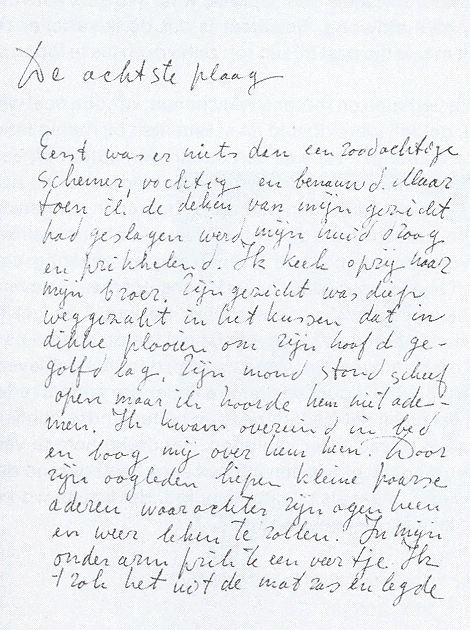 De achtste plaag
Eerst was er niets dan een roodachtige
schemer, vochtig en benauwd. Maar
toen ik de deken van mijn gezicht
had geslagen werd mijn huid droog
en prikkelend. Ik keek opzij naar
mijn broer. Zijn gezicht was diep
weggezakt in het kussen dat in
dikke plooien om zijn hoofd ge-
golfd lag. Zijn mond stond scheef
open maar ik hoorde hem niet ade-
men. Ik kwam overeind in bed
en boog mij over hem heen. Door
zijn oogleden liepen kleine paarse
aderen waarachter zijn ogen heen
en weer leken te rollen. In mijn
onderarm prikte een veertje. Ik
trok het uit de matras en legde